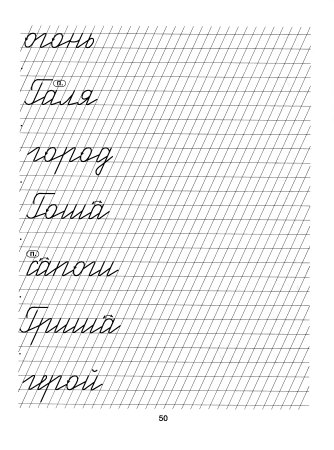 огонь
п.
Галя
город
Гоша
п.
сапоги
Гриша
герой
50